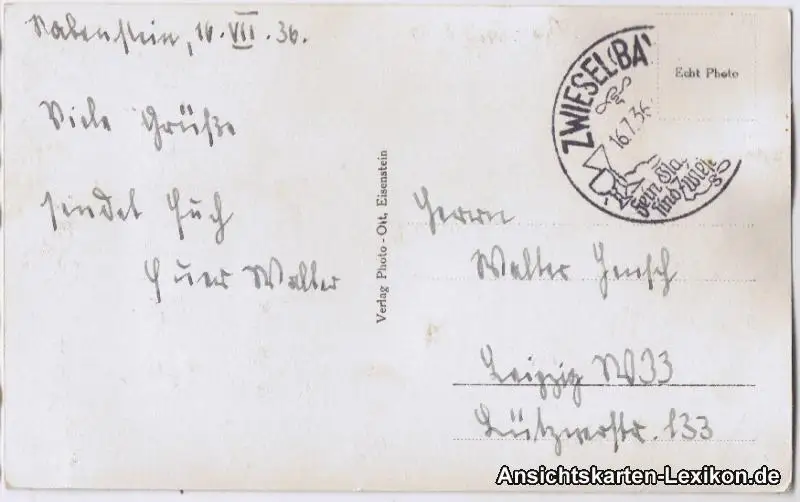 Rabenstein, 16. VII. 36.
Viele Grüße
sendet Euch
Euer Walter
Verlag Photo-Ott, Eisenstein
ZWIESEL(BA
16.7.36
Echt Photo
Herrn
Walter Jensch
Leipzig W33
Lütznerstr. 133
Ansichtskarten-Lexikon.de